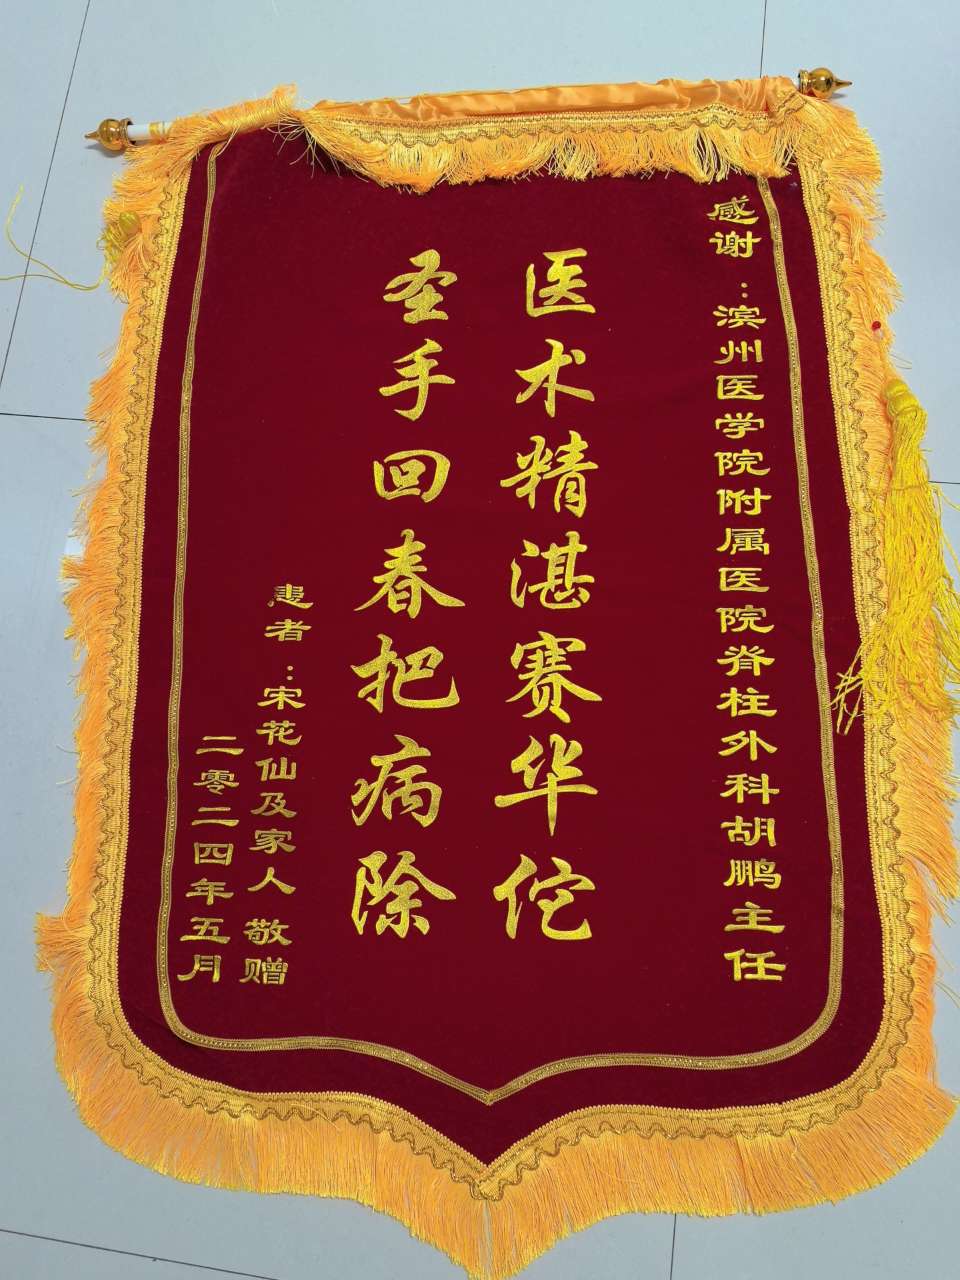 感谢：滨州医学院附属医院脊柱外科胡鹏主任
医术精湛赛华佗
圣手回春把病除
患者：宋花仙及家人 敬赠
二零二四年五月